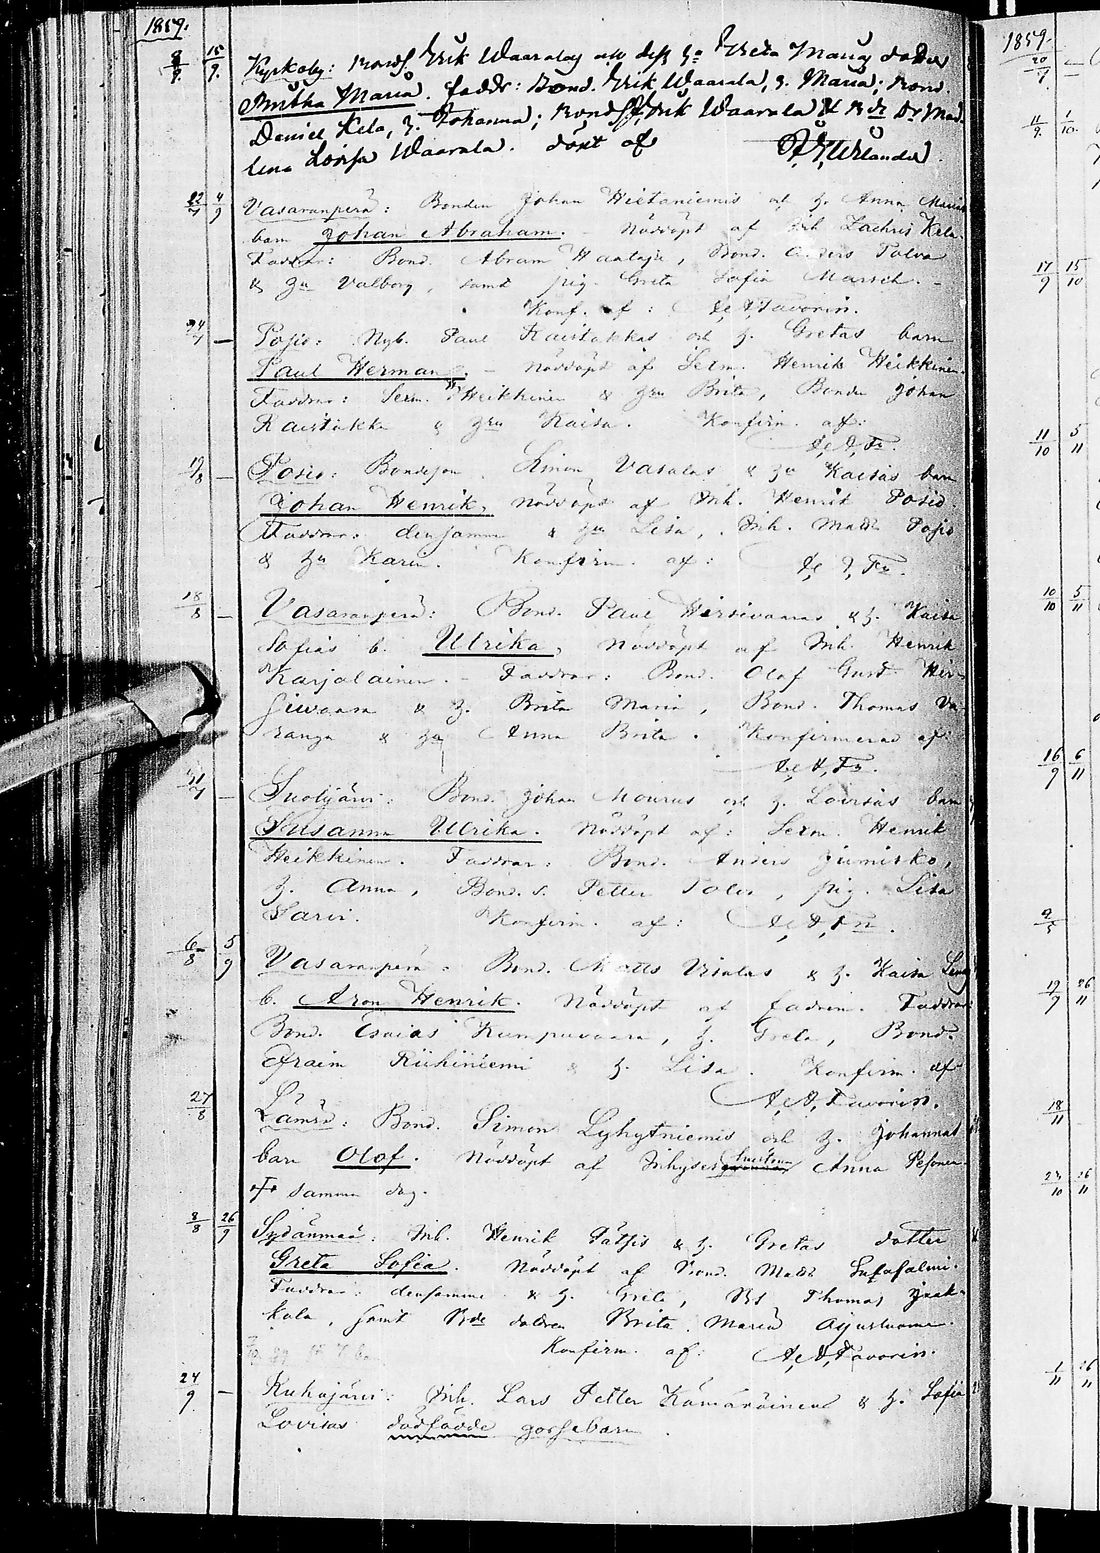 1859.
9/9. 15/9. Kyrkoby: Bonds. Erik Waaralas och dess h. Greta Marias dotter
Britha Maria. faddr: Bond. Erik Waarala, h. Maria; Bond.
Daniel Kela, h. Johanna; Bonds. Erik Waarala & Bde Dr Mad-
lena Lovisa Waarala. döpt af
22/7 4/9 Vasaranperä: Bonden Johan Hietaniemis och h. Anna Marias
barn Johan Abraham. – Nöddöpt af Inh. Zachris Kela.
Faddrar: Bond. Abram Haataja, Bond. Anders Tolva
& hu Valborg, samt pig. Greta Sofia
Konf. af: A. A. Favorin.
24/7 – Posio: Nyb. Paul Karstakkas och h. Gretas barn
Paul Herman. – Nöddöpt af Sexm. Henrik Heikkinen.
Faddrar: Sexm. H Heikkinen & hru Brita, Bonden Johan
& hru Kaisa. Konfirm. af:
A. A. Fn.
19/8 – Posio: Bondeson Simon Vasalas & hu Kaisas barn
Johan Henrik, nöddöpt af Inh. Henrik Posio.
Faddrar: densamme & hu Lisa, Inh. Matts Posio
& hu Karin. Konfirm. af: A. A. Fn.
18/8 – Vasaranperä: Bond. Paul Hirsivaaras & h. Kaisa
Sofias b. Ulrika, Nöddöpt af Inh. Henrik
Karjalainen. – Faddrar: Bond. Olof Gust. Hir-
sivaara & h. Brita Maria, Bond. Thomas Va-
ranga & hu Anna Brita. Konfirmerad af:
A. A. Fn.
31/7 – Suolijärvi: Bond. Johan Mourus och h. Lovisas barn
Susanna Ulrika. Nöddöpt af: Sexm. Henrik
Heikkinen. Faddrar: Bond. Anders Jumisko,
h. Anna, Bond. s. Petter Tolva, pig. Lisa
Särvi. Konfirm. af: A. A. Fn.
6/8 5/9 Vasaranperä: Bond. Matts Vialas & h. Kaisa
b. Aron Henrik. Nöddöpt af fadren. Faddrar
Bond. Esaias Kumpuvaara, h. Greta, Bond.
Efraim Riihiniemi & h. Lisa. Konfirm. af
A. A. Favorin.
27/8 Lämsä: Bond. Simon Lyhytniemis och h. Johannas
barn Olof. Nöddöpt af Inhyses hustrun Anna Pesonen
† samma dag.
8/8 26/9 Sydänmaa: Inh. Henrik Pätsis & h. Gretas dotter
Greta Sofia. Nöddöpt af Bond. Matts
Faddrar: densamme & h. Greta, Bds Thomas Jaak-
kola, samt Bde dottren Brita Maria
Konfirm. af: A. A. Favorin.
24/9 – Kuhajärvi: Inh. Lars Petter Kämäräinens & h. Sofia
Lovisas dödfödde gossebarn.
1859.
20/7 –
11/9. 1/10.
17/9 15/10
11/10 5/11
10/10 5/11
16/9 6/11
9/5
19/9 26/11
18/11
23/10 26/11
1/11 26/11